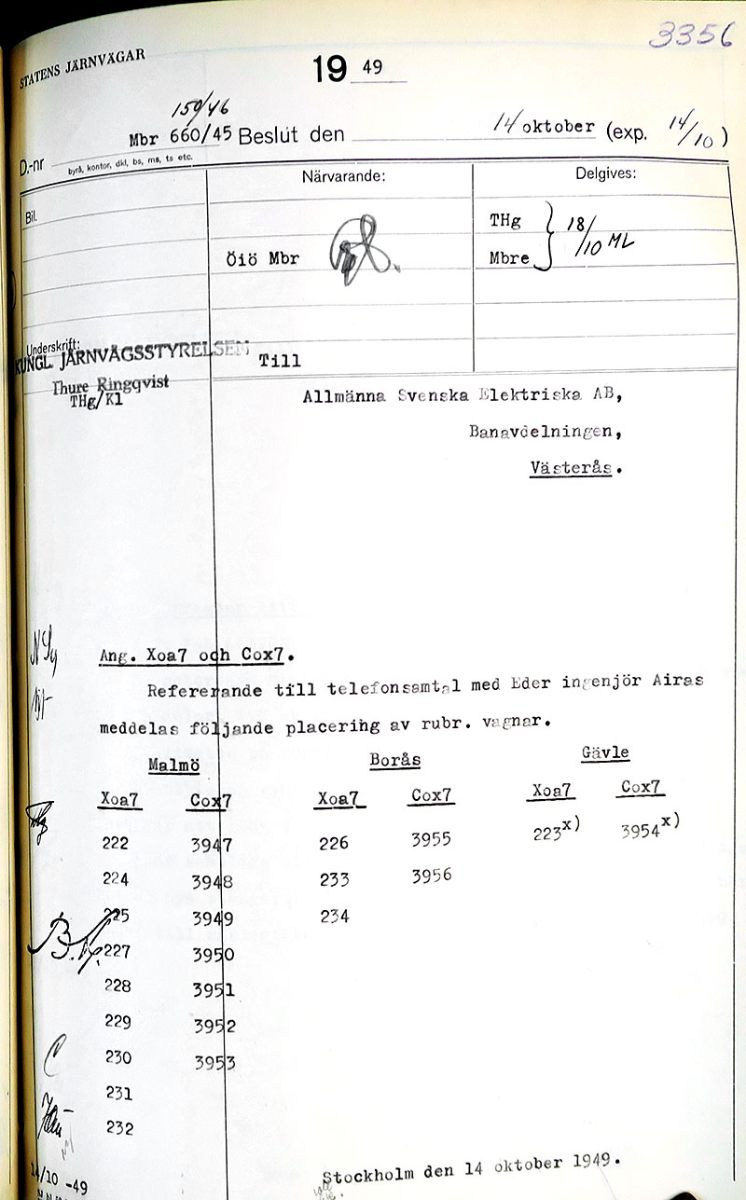 3356
STATENS JÄRNVÄGAR
19 49
159/46
D.-nr Mbr 660/45 Beslut den 14 oktober (exp. 14/10)
byrå, kontor, dkl, bs, ms, ts etc.
Bil.
Närvarande:
Delgives:
Öiö Mbr
THg
Mbre
18/10 ML
Underskrift:
KUNGL. JÄRNVÄGSSTYRELSEN
Thure Ringqvist
THg/Kl
Till
Allmänna Svenska Elektriska AB,
Banavdelningen,
Västerås.
Ang. Xoa7 och Cox7.
Refererande till telefonsamtal med Eder ingenjör Airas
meddelas följande placering av rubr. vagnar.
Malmö Borås Gävle
Xoa7 Cox7 Xoa7 Cox7 Xoa7 Cox7
222 3947 226 3955 223x) 3954x)
224 3948 233 3956
225 3949 234
227 3950
228 3951
229 3952
230 3953
231
232
14/10 -49
Stockholm den 14 oktober 1949.